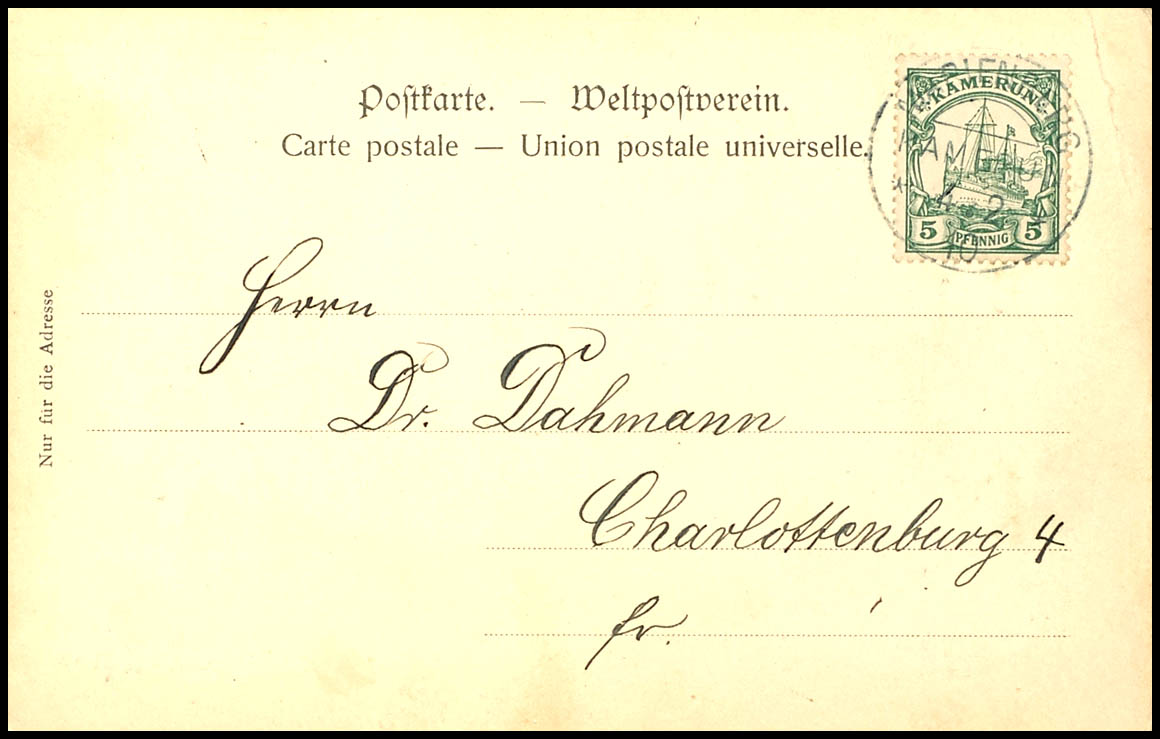 Postkarte. — Weltpostverein.
Carte postale — Union postale universelle.
KAMERUN
5 PFENNIG 5
KAMERUN
4 2
10
Nur für die Adresse
Herrn
Dr. Dahmann
Charlottenburg 4
fr.